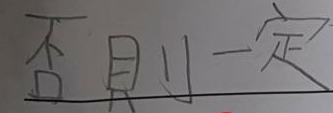 否則一定